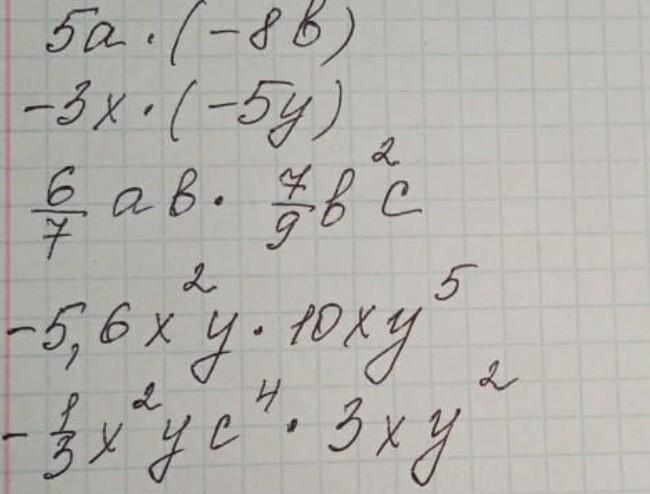 5a · (-8b)
-3x · (-5y)
6/7 ab · 7/9 b²c
-5,6x²y · 10xy⁵
-1/3 x²yc⁴ · 3xy²